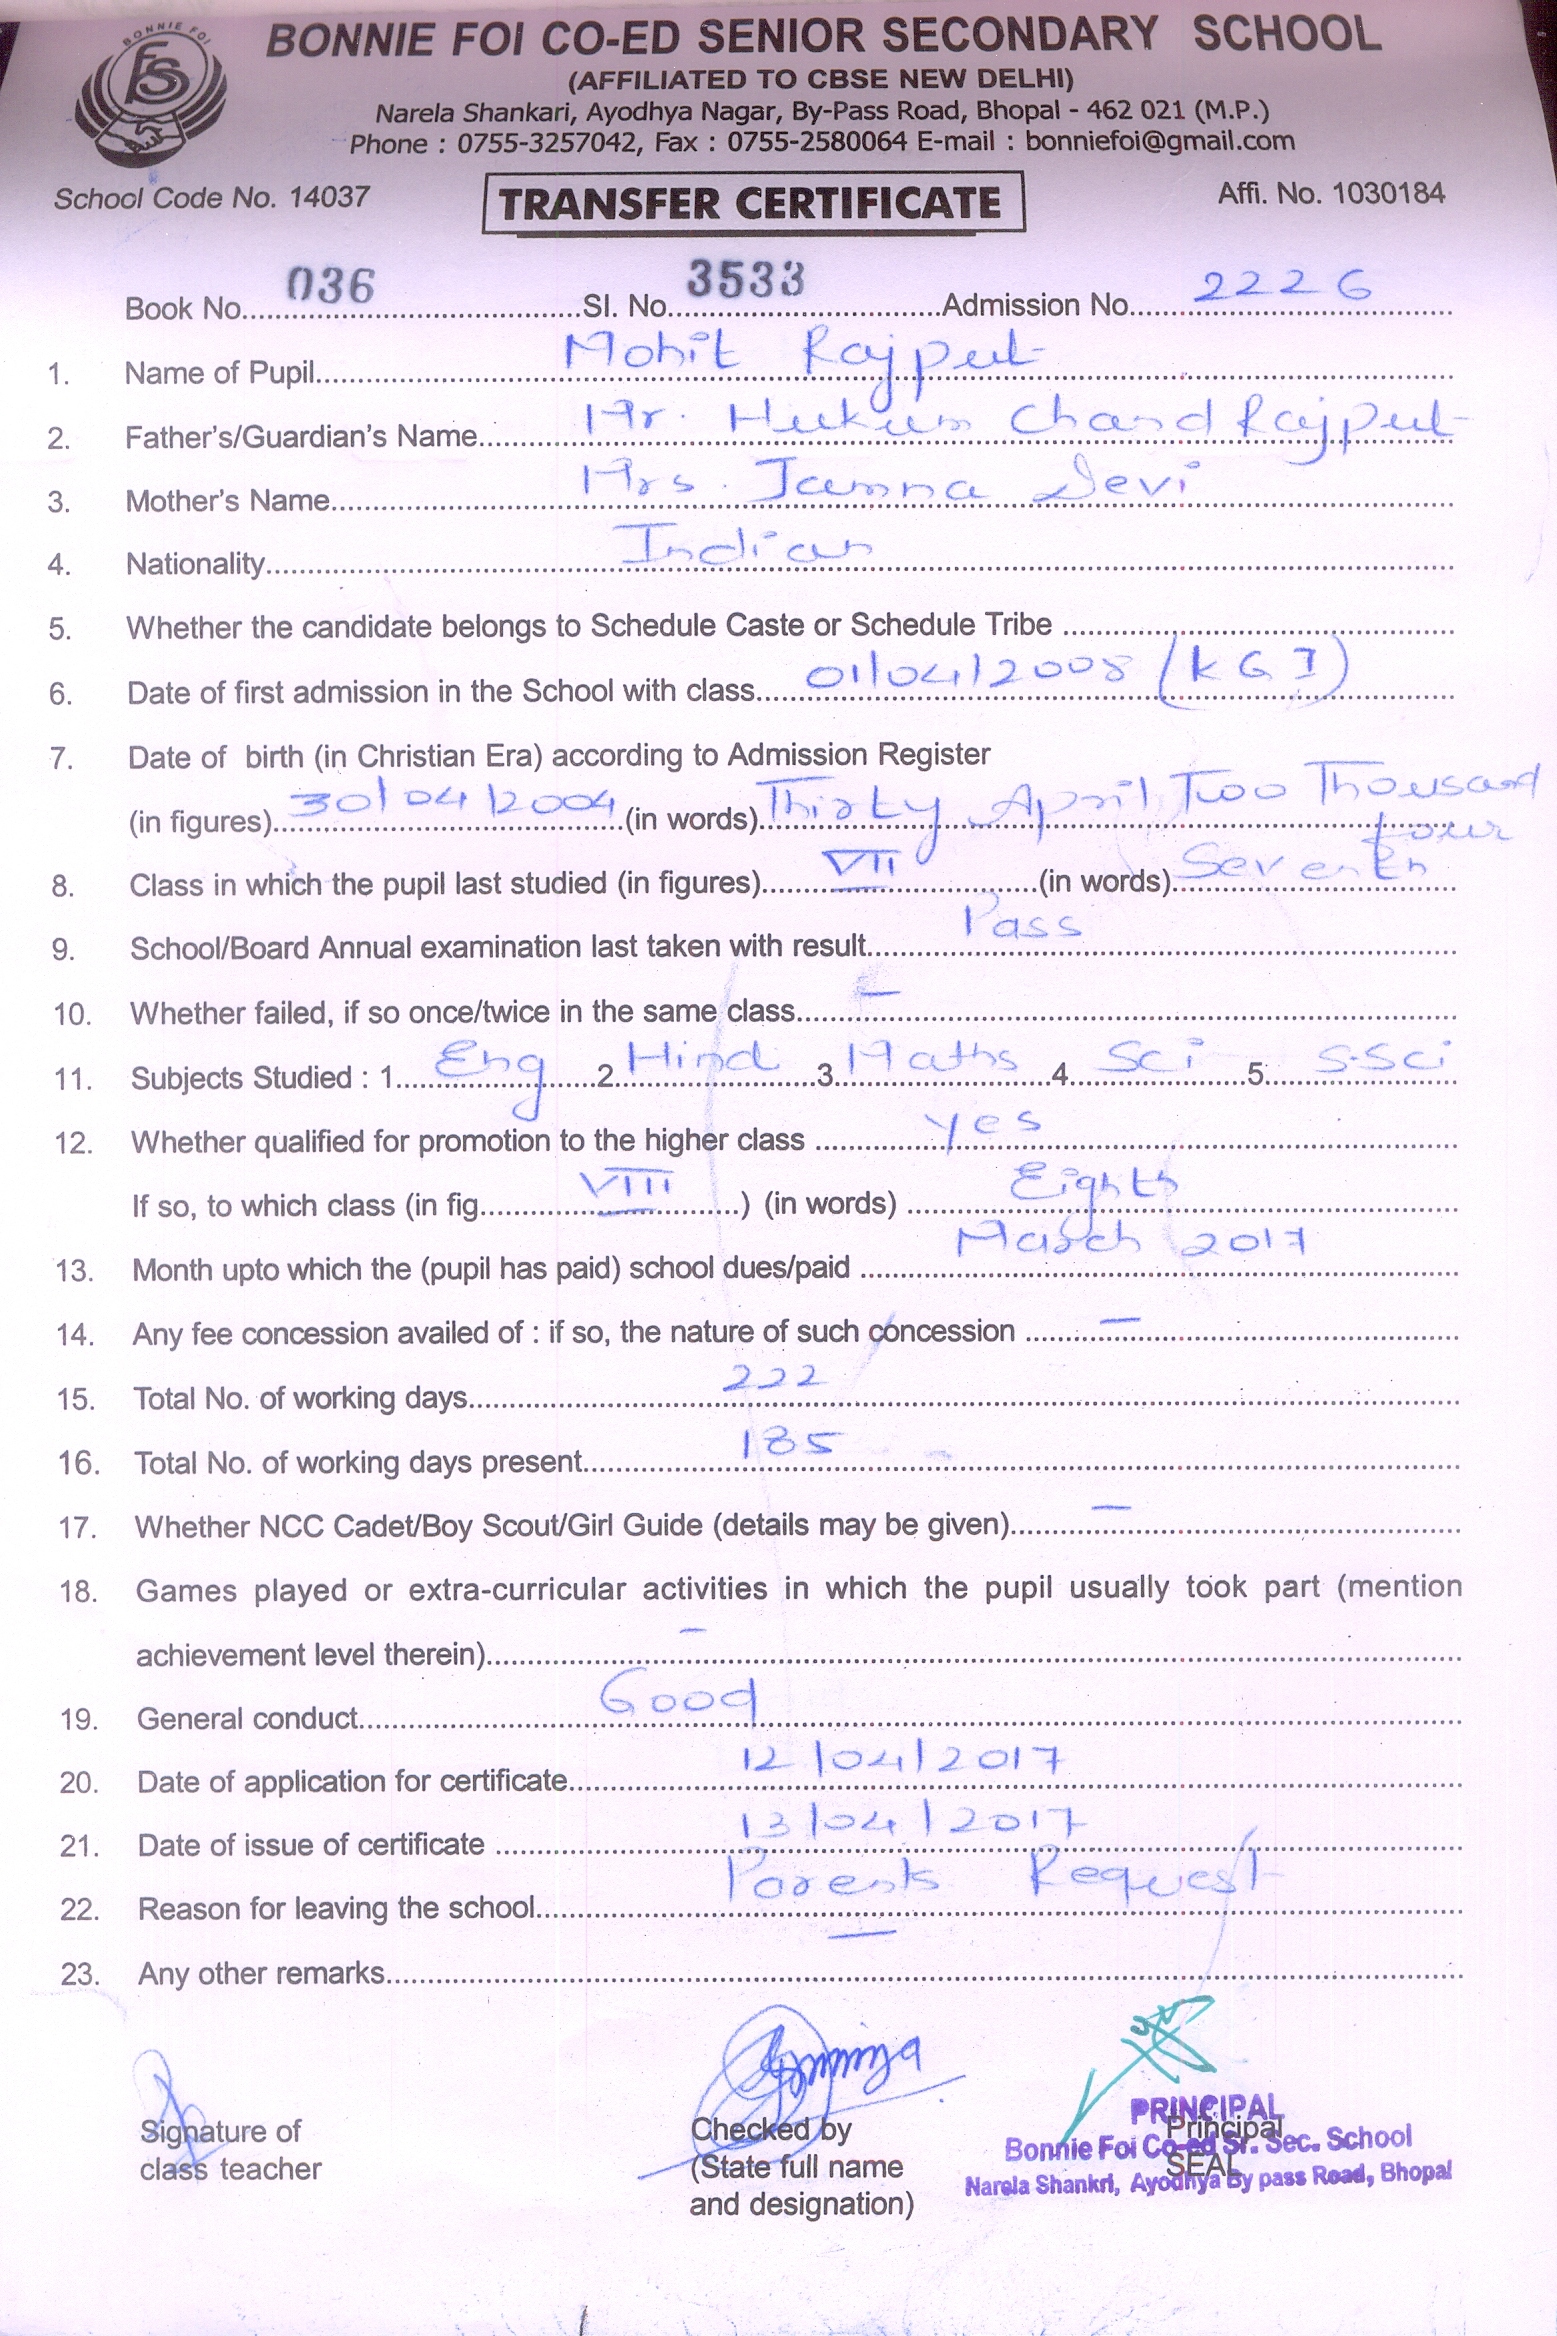 BONNIE FOI
BONNIE FOI CO-ED SENIOR SECONDARY SCHOOL
(AFFILIATED TO CBSE NEW DELHI)
Narela Shankari, Ayodhya Nagar, By-Pass Road, Bhopal - 462 021 (M.P.)
Phone : 0755-3257042, Fax : 0755-2580064 E-mail : bonniefoi@gmail.com
School Code No. 14037 TRANSFER CERTIFICATE Affi. No. 1030184
Book No. 036 Sl. No. 3533 Admission No. 2226
1. Name of Pupil Mohit Rajput
2. Father's/Guardian's Name Mr. Hukum Chand Rajput
3. Mother's Name Mrs. Jamna Devi
4. Nationality Indian
5. Whether the candidate belongs to Schedule Caste or Schedule Tribe
6. Date of first admission in the School with class 01/04/2008 (KG I)
7. Date of birth (in Christian Era) according to Admission Register
(in figures) 30/04/2004 (in words) Thirty April Two Thousand
four
8. Class in which the pupil last studied (in figures) VII (in words) Seventh
9. School/Board Annual examination last taken with result Pass
10. Whether failed, if so once/twice in the same class —
11. Subjects Studied : 1 Eng 2 Hind 3 Maths 4 Sci 5 S.Sci
12. Whether qualified for promotion to the higher class yes
If so, to which class (in fig. VIII ) (in words) Eighth
13. Month upto which the (pupil has paid) school dues/paid March 2017
14. Any fee concession availed of : if so, the nature of such concession —
15. Total No. of working days 222
16. Total No. of working days present 185
17. Whether NCC Cadet/Boy Scout/Girl Guide (details may be given) —
18. Games played or extra-curricular activities in which the pupil usually took part (mention
achievement level therein) —
19. General conduct Good
20. Date of application for certificate 12/04/2017
21. Date of issue of certificate 13/04/2017
22. Reason for leaving the school Parents Request
23. Any other remarks —
Signature of
class teacher
Checked by
(State full name
and designation)
Principal
SEAL
PRINCIPAL
Bonnie Foi Co-ed Sr. Sec. School
Narela Shankri, Ayodhya By pass Road, Bhopal